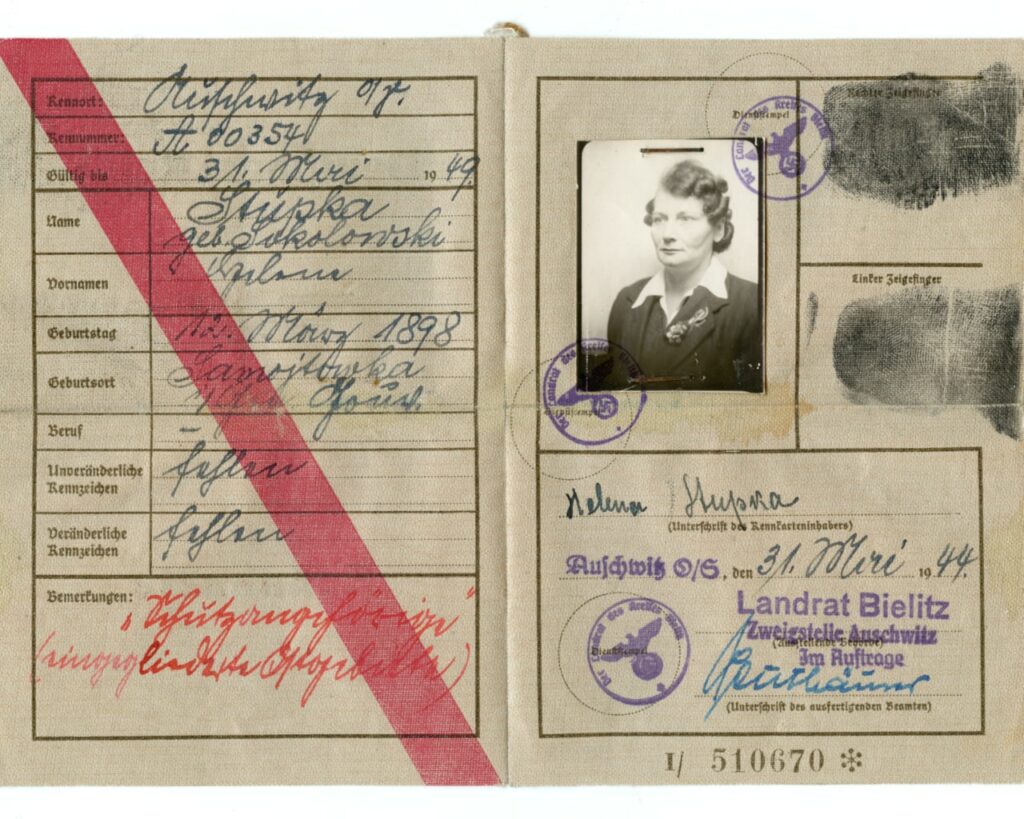 Kennort: Auschwitz O/S.
Kennummer: A 00354
Gültig bis 31. Mai 1949.
Name Stupka
geb. Sokolowski
Vornamen Helene
Geburtstag 12. März 1898
Geburtsort
Beruf –
Unveränderliche Kennzeichen fehlen
Veränderliche Kennzeichen fehlen
Bemerkungen: "Schutzangehörige"
(eingegliederte Ostgebiete)
Dienststempel
Der Landrat des Kreises Bielitz
Rechter Zeigefinger
Linker Zeigefinger
Dienststempel
Der Landrat des Kreises
Helena Stupka
(Unterschrift des Kennkarteninhabers)
Auschwitz O/S, den 31. Mai 1944.
Landrat Bielitz
Zweigstelle Auschwitz
(Ausstellende Behörde)
Im Auftrage
Dienststempel
Der Landrat des Kreises
(Unterschrift des ausfertigenden Beamten)
I/ 510670 ✻